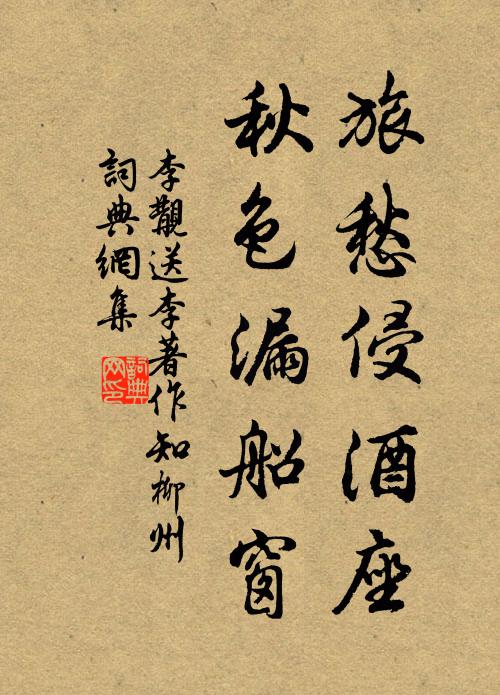 旅愁侵酒座
秋色漏船窗
李覯送李著作知柳州
詞典網集
詞典
网印